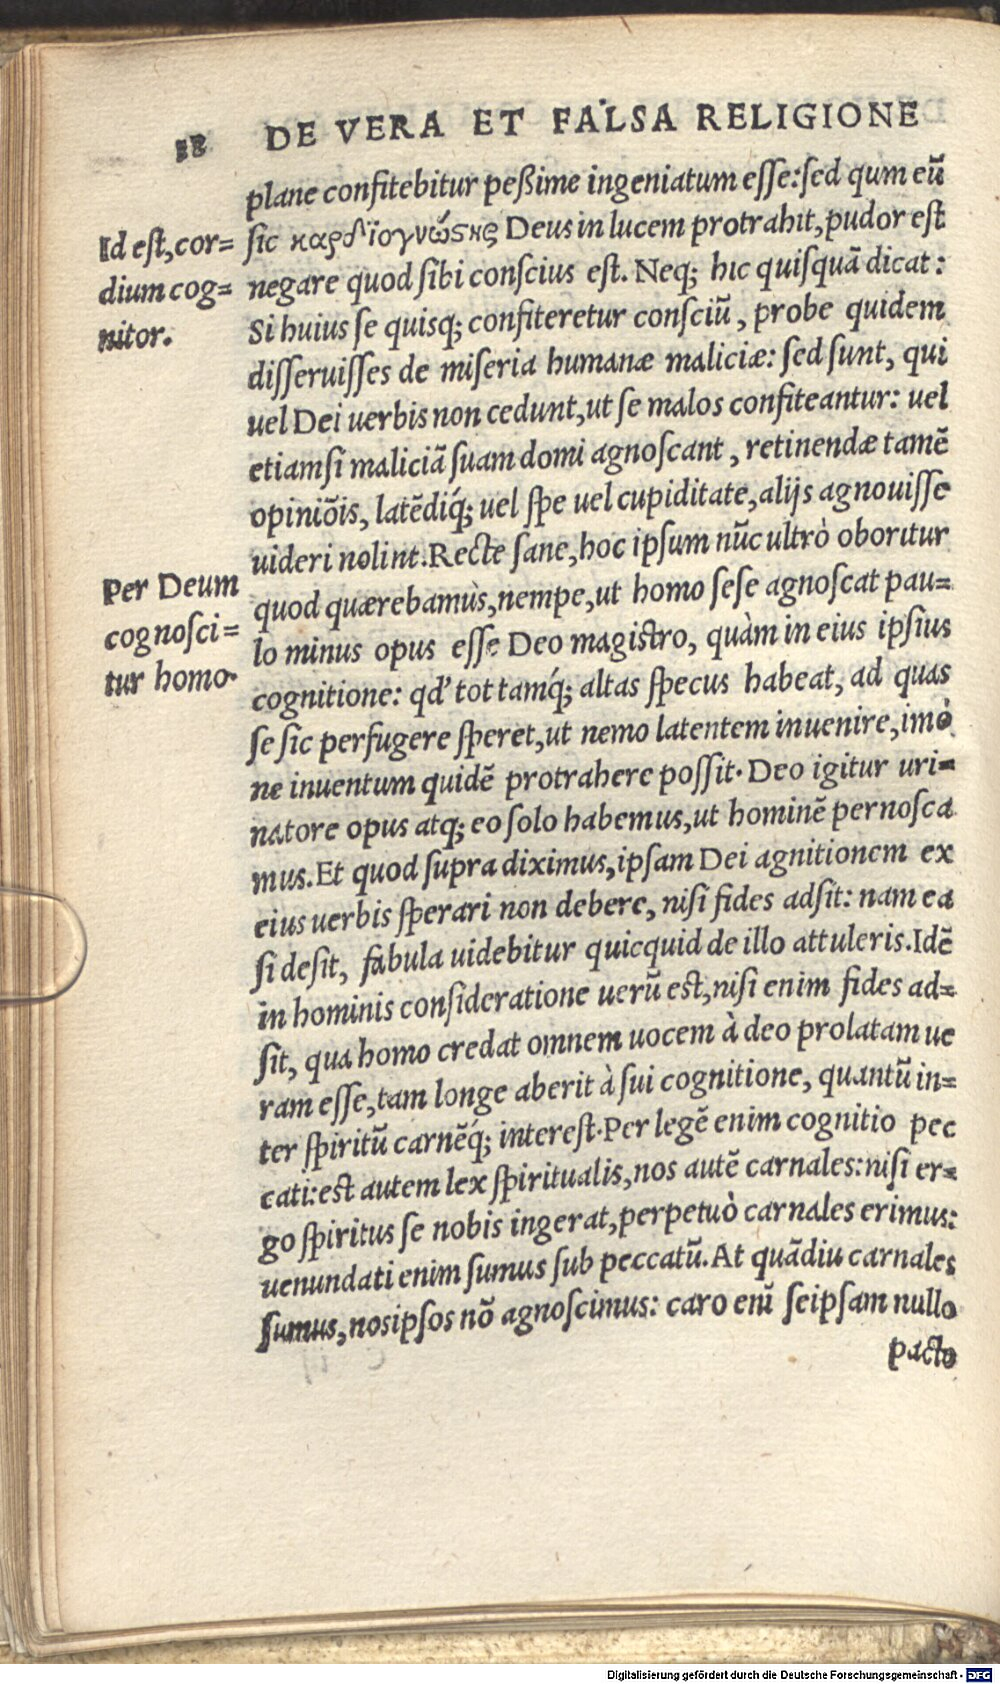 38 DE VERA ET FALSA RELIGIONE
plane confitebitur peßime ingeniatum esse: sed qum eū
sic καρδϊογνώςης Deus in lucem protrahit, pudor est
negare quod sibi conscius est. Neq; hic quisquā dicat:
Si huius se quisq; confiteretur consciū, probe quidem
disseruisses de miseria humanæ maliciæ: sed sunt, qui
uel Dei uerbis non cedunt, ut se malos confiteantur: uel
etiamsi maliciā suam domi agnoscant, retinendæ tamē
opiniōis, latēdiq́; uel spe uel cupiditate, alijs agnouisse
uideri nolint. Recte sane, hoc ipsum nūc ultrò oboritur
quod quærebamus, nempe, ut homo sese agnoscat pau=
lo minus opus esse Deo magistro, quàm in eius ipsius
cognitione: qd' tot tamq́; altas specus habeat, ad quas
se sic perfugere speret, ut nemo latentem inuenire, imò
ne inuentum quidē protrahere possit. Deo igitur uri=
natore opus atq; eo solo habemus, ut hominē pernosca
mus. Et quod supra diximus, ipsam Dei agnitionem ex
eius uerbis sperari non debere, nisi fides adsit: nam ea
si desit, fabula uidebitur quicquid de illo attuleris. Idē
in hominis consideratione uerū est, nisi enim fides ad=
sit, qua homo credat omnem uocem à deo prolatam ue
ram esse, tam longe aberit à sui cognitione, quantū in=
ter spiritū carnēq́; interest. Per legē enim cognitio pec
cati: est autem lex spiritualis, nos autē carnales: nisi er=
go spiritus se nobis ingerat, perpetuò carnales erimus:
uenundati enim sumus sub peccatū. At quādiu carnales
sumus, nosipsos nō agnoscimus: caro enī seipsam nullo
pacto
Id est, cor=
dium cog=
nitor.
Per Deum
cognosci=
tur homo.
Digitalisierung gefördert durch die Deutsche Forschungsgemeinschaft - DFG